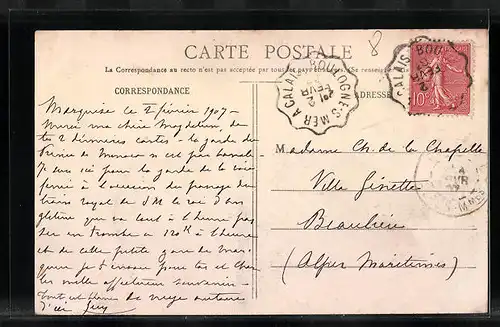 8
CARTE POSTALE
La Correspondance au recto n'est pas acceptée par tous les pays
CORRESPONDANCE
ADRESSE
CALAIS A BOULOGNE S MER
2 FEVR
CALAIS BOU
2 FEVR
10
Marquise le 2 février 1907 -
Merci ma chère Magdelein, de
tes 2 dernières cartes - la garde du
Prince de Monaco n'est pas banale
ici pour la garde de la voie
ferrée à l'occasion du passage du
train royal de S M le roi d'an
gleterre qui va tout à l'heure pas
ser en trombe à 120 K à l'heure
et de cette petite gare de Mar
quise je t'envoie pour toi et Char
les mille affectueux souvenirs -
Tout est blanc de neige autour
d'ici Guy
Madame Ch. de la Chapelle
Villa Ginette
Beaulieu
(Alpes Maritimes)